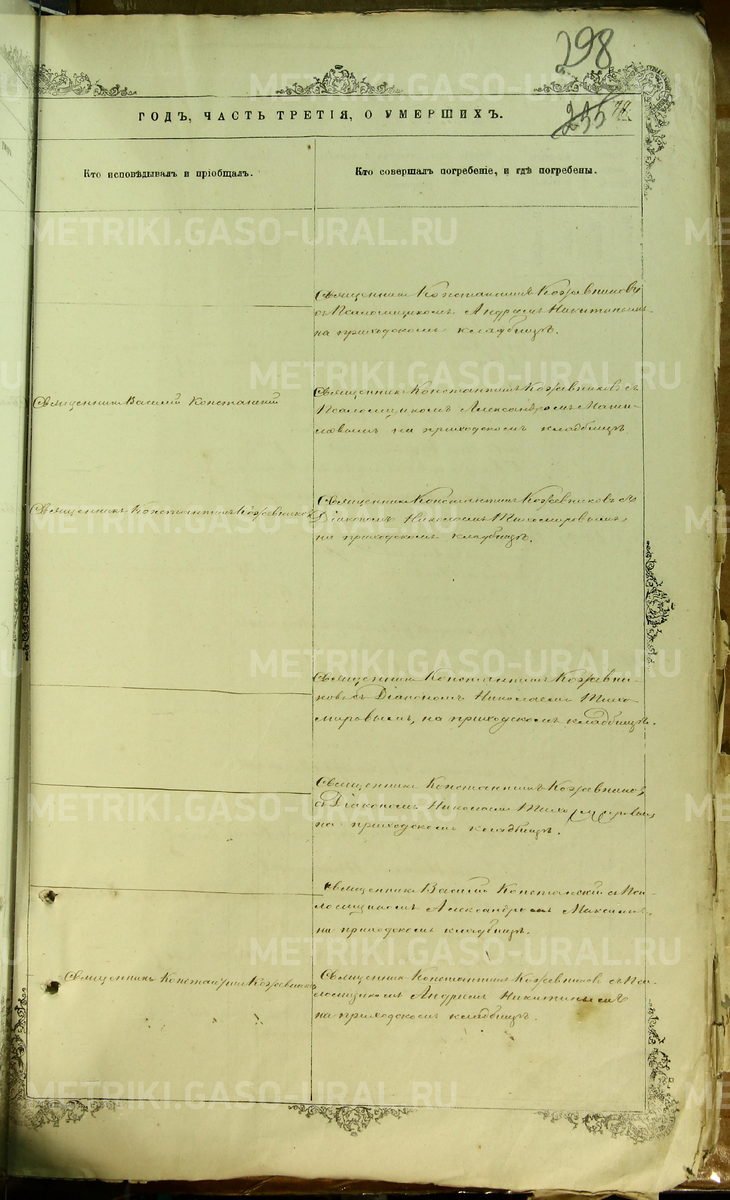 298
ГОДЪ, ЧАСТЬ ТРЕТІЯ, О УМЕРШИХЪ.
Кто исповѣдывалъ и пріобщалъ.
Кто совершалъ погребеніе, и гдѣ погребены.
METRIKI.GASO-URAL.RU
Священникъ Константинъ Кожевниковъ
съ Псаломщикомъ Андреемъ Никитинымъ
на приходскомъ кладбищѣ.
Священникъ Василій Констанскій
Священникъ Константинъ Кожевниковъ съ
Псаломщикомъ Александромъ
на приходскомъ кладбищѣ
Священникъ Константинъ Кожевниковъ
Священникъ Константинъ Кожевниковъ съ
Діакономъ Николаемъ Тихомировымъ,
на приходскомъ кладбищѣ.
Священникъ Константинъ Кожевни-
ковъ съ Діакономъ Николаемъ Тихо-
мировымъ, на приходскомъ кладбищѣ.
Священникъ Константинъ Кожевниковъ
съ Діакономъ Николаемъ Тихомировымъ
на приходскомъ кладбищѣ.
Священникъ Василій Констанскій съ Пса-
ломщикомъ Александромъ
на приходскомъ кладбищѣ.
Священникъ Константинъ Кожевниковъ
Священникъ Константинъ Кожевниковъ съ Пса-
ломщикомъ Андреемъ Никитинымъ
на приходскомъ кладбищѣ.